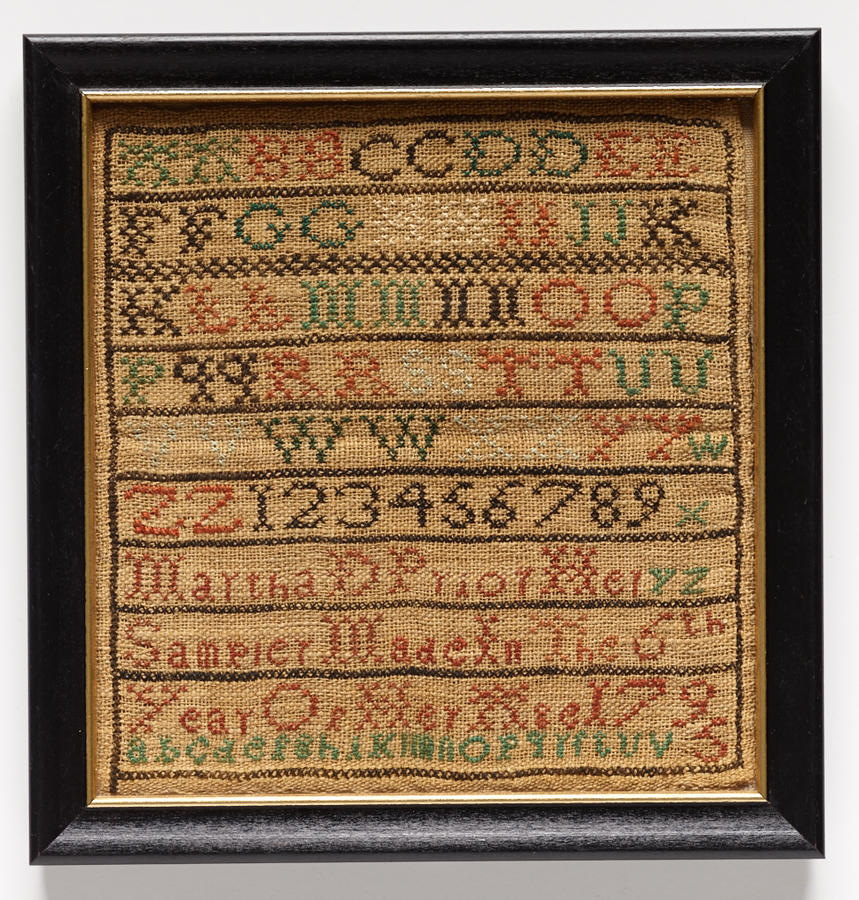 A A B B C C D D E E
F F G G H H I I J J K
K L L M M N N O O P
P q q R R S S T T U U
V V W W X X Y Y w
Z Z 1 2 3 4 5 6 7 8 9 x
Martha D Prior Her yz
Sampler Made In The 6th
Year Of Her Age 1795
abcdefghiklmnopqrſstuv